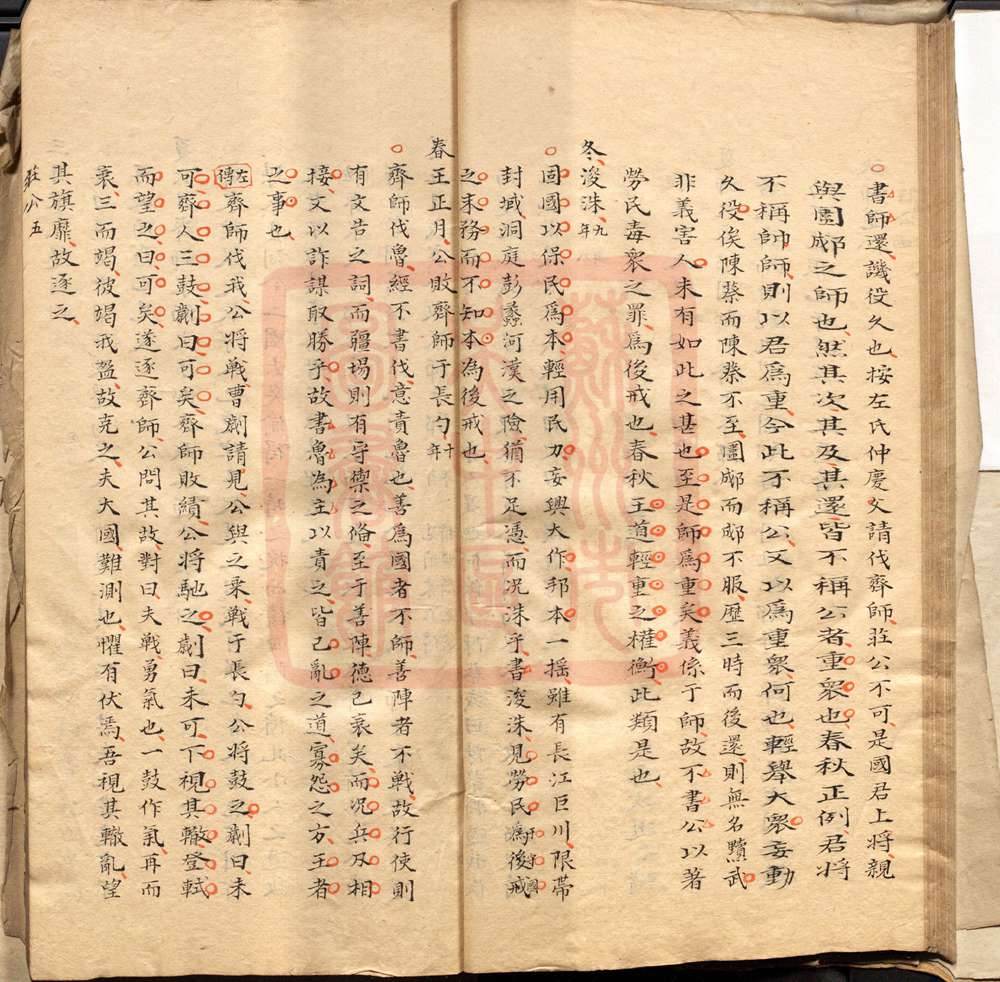 書師還譏役久也按左氏仲慶父請伐齊師莊公不可是國君上將親
與圍郕之師也然其次其及其還皆不稱公者重衆也春秋正例君將
不稱帥師則以君爲重今此不稱公又以爲重衆何也輕舉大衆妄動
久役俟陳蔡而陳蔡不至圍郕而郕不服歷三時而後還則無名黷武
非義害人未有如此之甚也至是師爲重矣義係于師故不書公以著
勞民毒衆之罪爲後戒也春秋王道輕重之權衡此類是也
冬浚洙九年
固國以保民爲本輕用民力妄興大作邦本一搖雖有長江巨川限帶
封域洞庭彭蠡河漢之險猶不足憑而況洙乎書浚洙見勞民爲後戒
之末務而不知本為後戒也
春王正月公敗齊師于長勺十年
齊師伐魯經不書伐意責魯也善爲國者不師善陣者不戰故行使則
有文告之詞而疆場則有守禦之俻至于善陣德已衰矣而况兵刄相
接又以詐謀取勝乎故書魯為主以責之皆已亂之道寡怨之方王者
之事也
左傳齊師伐我公將戰曹劌請見公與之乘戰于長勺公將鼓之劌曰未
可齊人三鼓劌曰可矣齊師敗績公將馳之劌曰未可下視其轍登軾
而望之曰可矣遂逐齊師公問其故對曰夫戰勇氣也一鼓作氣再而
衰三而竭彼竭我盈故克之夫大國難測也懼有伏焉吾視其轍亂望
其旗靡故逐之
莊公五